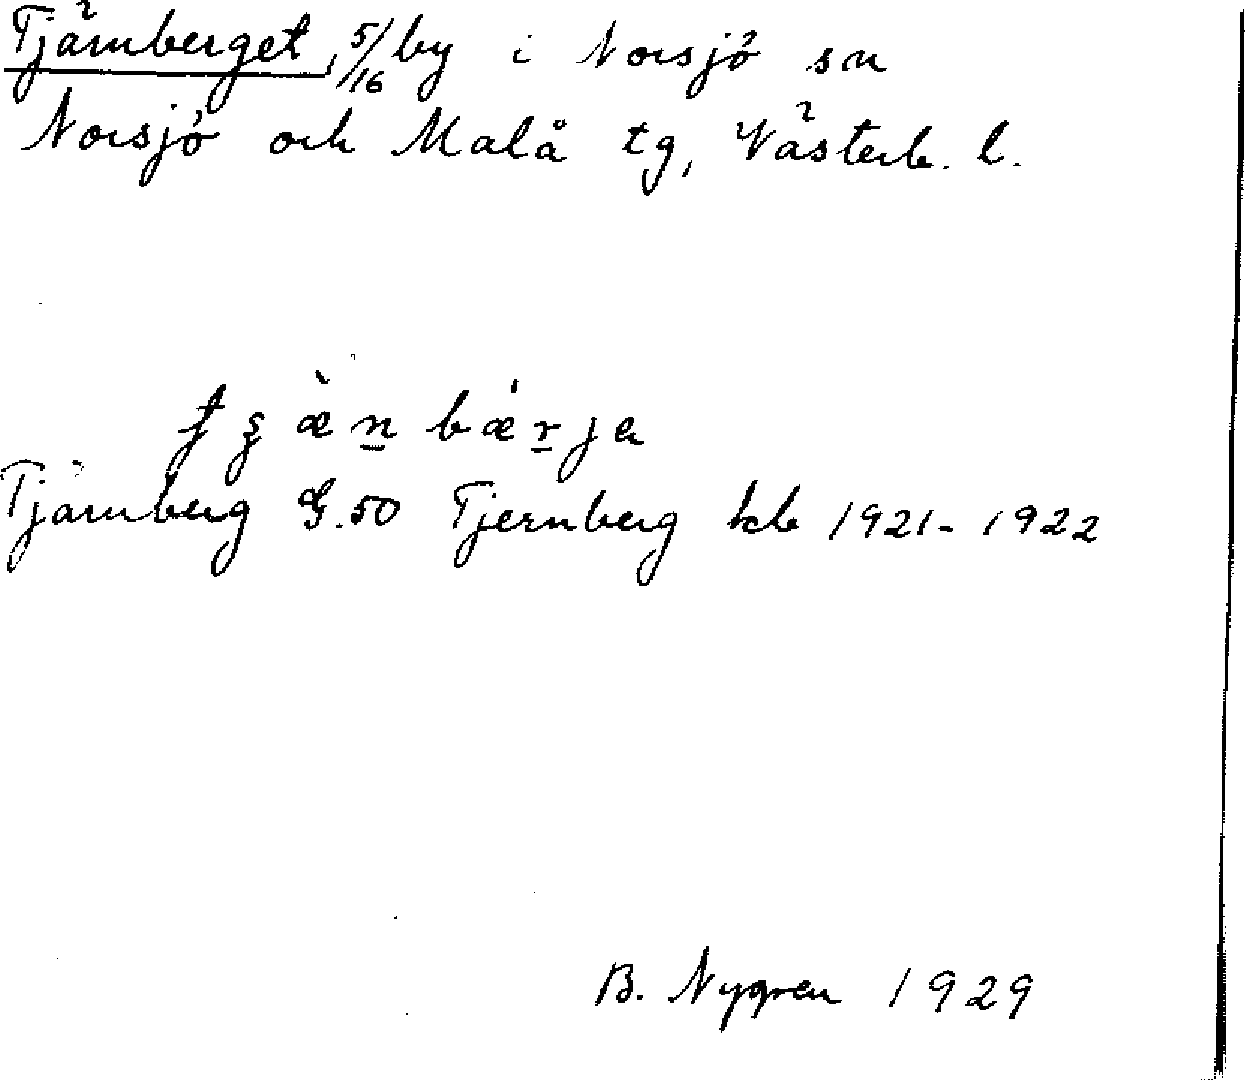 Tjärnberget, 5/16 by i Norsjö sn
Norsjö och Malå tg, Västerb. l.
Tjärnberg G. 50 Tjernberg kb 1921-1922
B. Nygren 1929